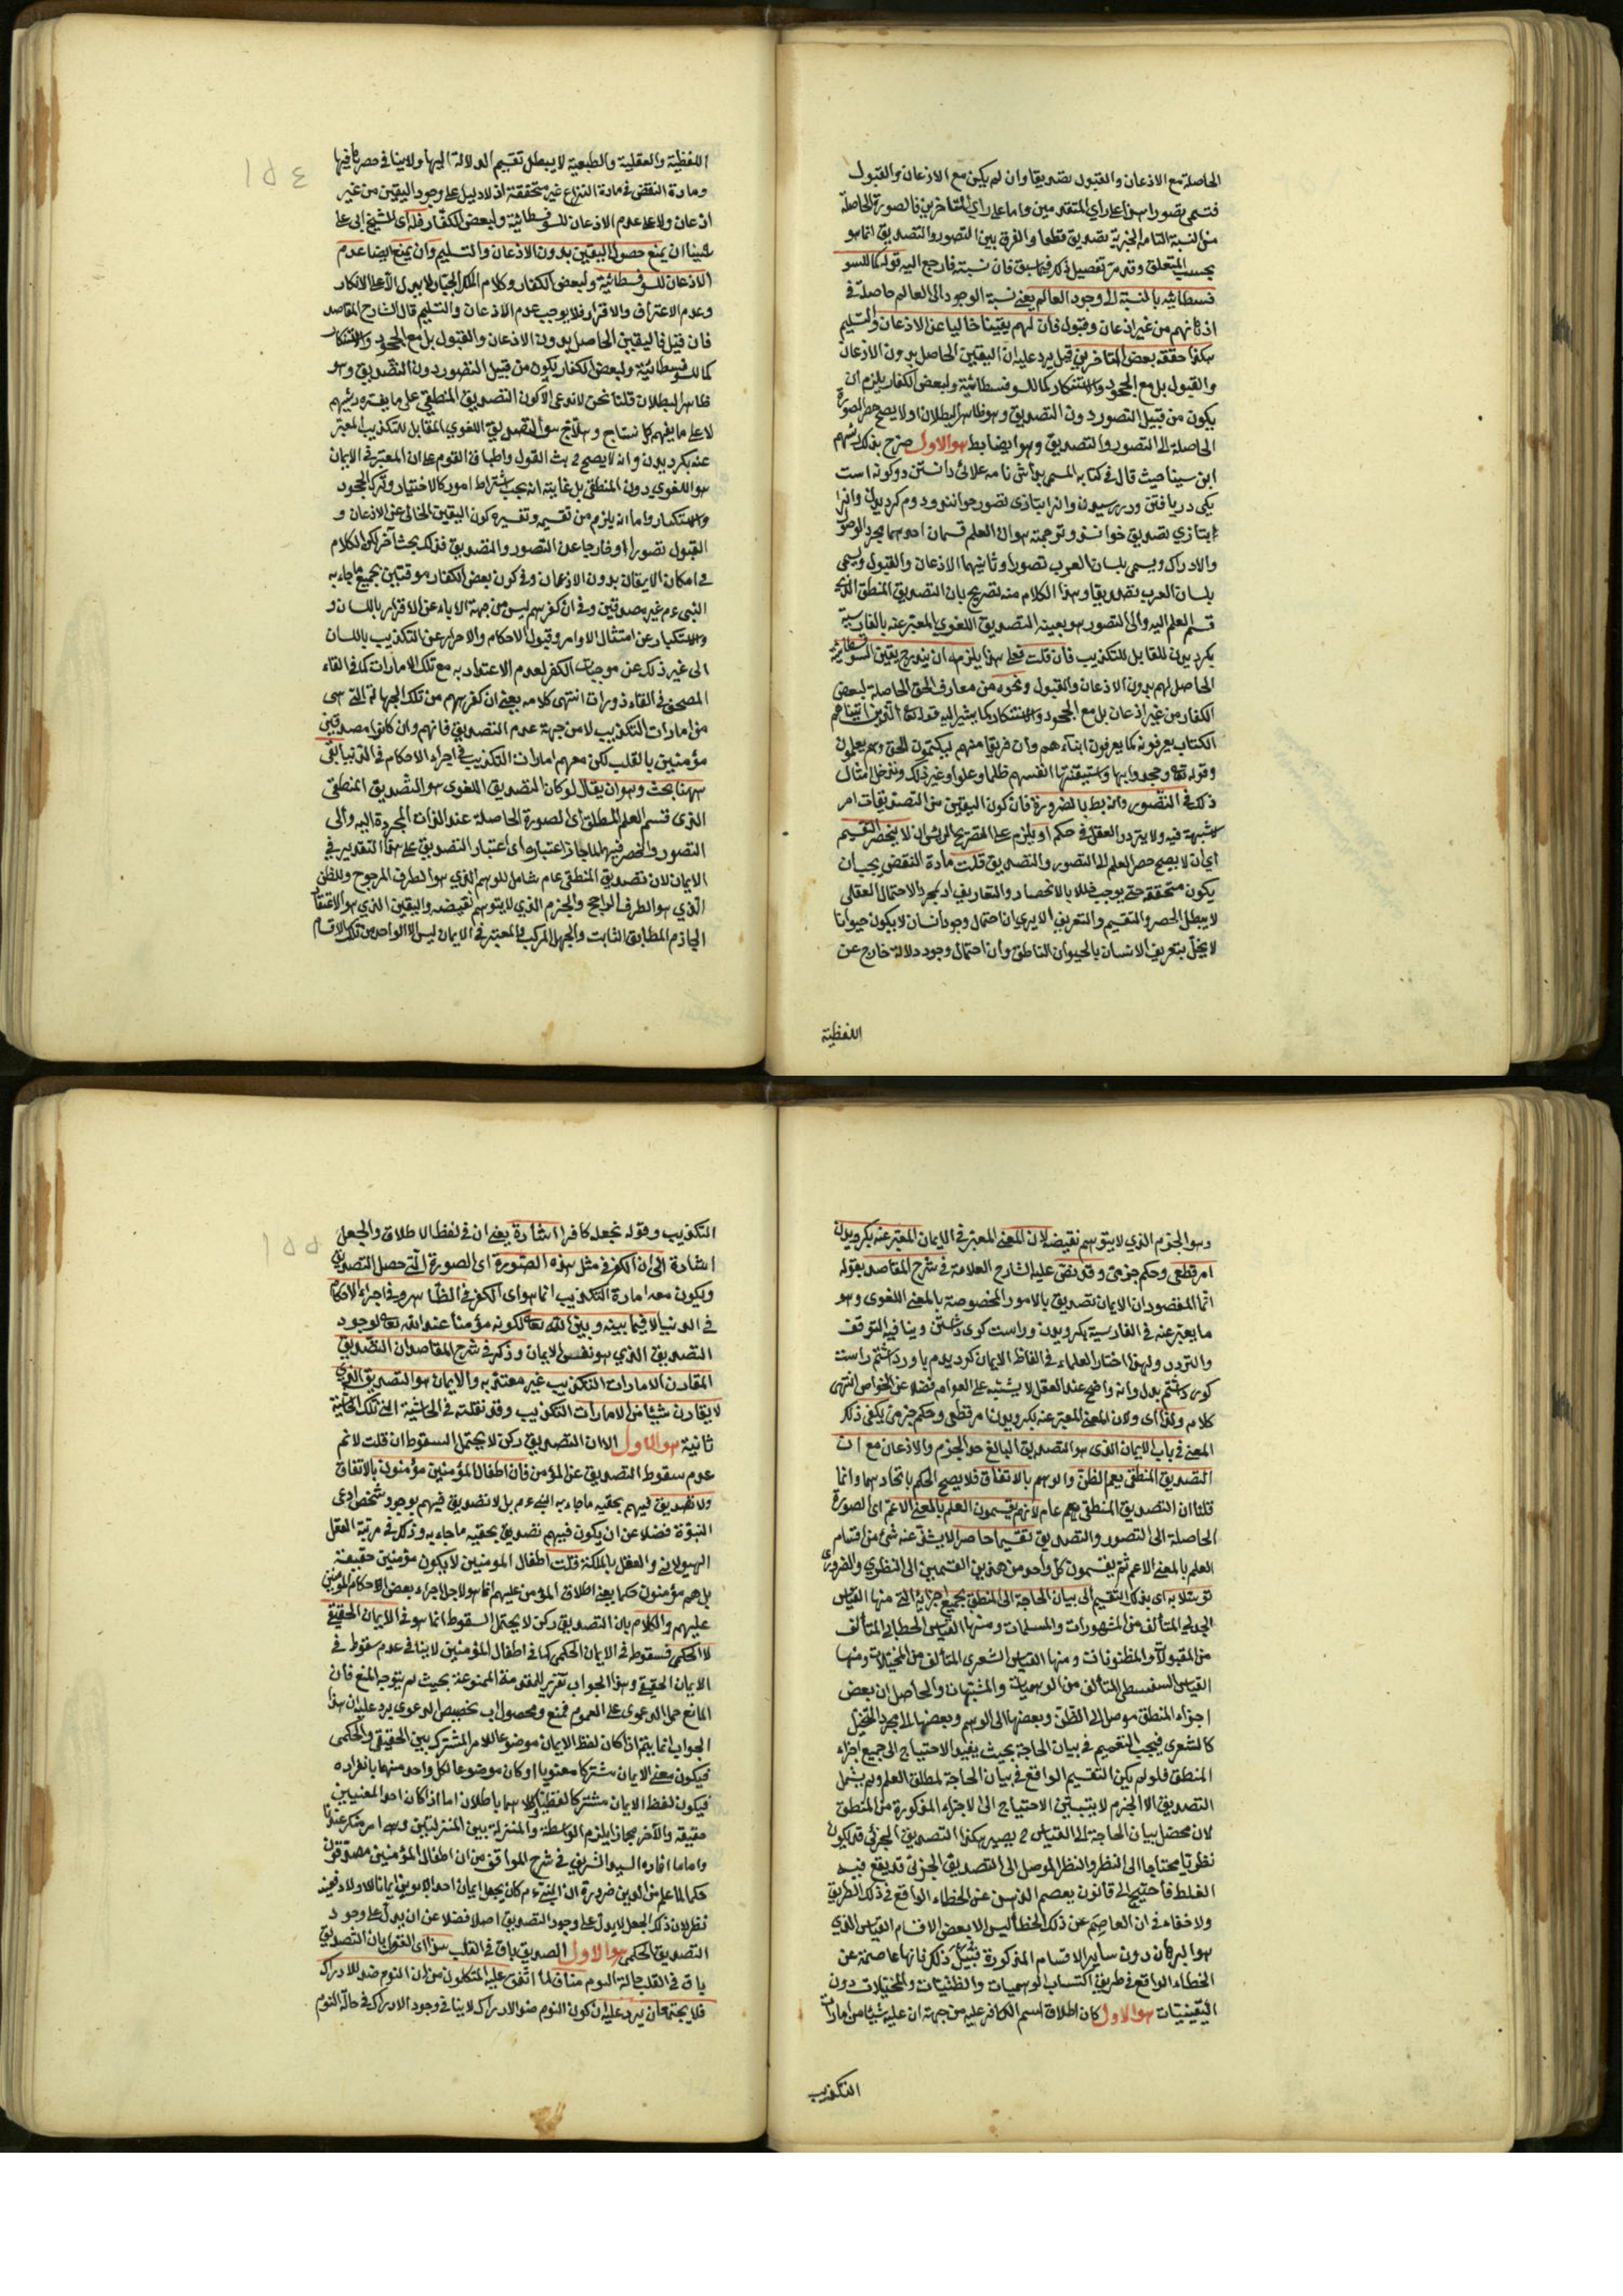 الحاصلة مع الاذعان والقبول تصديقا وان لم يكن مع الاذعان والقبول
فتسمى تصورا هذا على راي المتقدمين واما على راي المتاخرين فالصورة الحاصلة
من النسبة التامة الخبرية تصديق قطعا والفرق بين التصور والتصديق انما هو
بحسب المتعلق وقد مر تفصيل ذلك فيما سبق فان نسبة فارجع اليه قوله كما للسو
فسطائية بالنسبة الى وجود العالم يعني نسبة الوجود الى العالم حاصلة في
اذهانهم من غير اذعان وقبول فان لهم يقينا خاليا عن الاذعان والتسليم
هكذا حققه بعض المتاخرين قيل يرد عليه ان اليقين الحاصل بدون الاذعان
والقبول بل مع الجحود والاستنكار كما للسوفسطائية ولبعض الكفار يلزم ان
يكون من قبيل التصور دون التصديق وهو ظاهر البطلان او لا يصح حصر الصورة
الحاصلة الى التصور والتصديق وهو ايضا بط هو الاول صرح بذلك رئيسهم
ابن سينا حيث قال في كتابه المسمى بدانش نامه علائى دانستن دوكونه است
يكى دريافتن ودررسيدن وانرا بتازى تصور خوانند ودوم كرديدن وانرا
بتازي تصديق خوانند وترجمته هو ان العلم قسمان احدهما مجرد الوصول
والادراك ويسمى بلسان العرب تصورا وثانيهما الاذعان والقبول ويسمى
بلسان العرب تصديقا وهذا الكلام منه تصريح بان التصديق المنطقي الذي
قسم العلم اليه والى التصور هو بعينه التصديق اللغوي المعبر عنه بالفارسية
بكرديدن المقابل للتكذيب فان قلت فعلى هذا يلزمه ان يندرج يقين السوفسطائية
الحاصل لهم بدون الاذعان والقبول ونحوه من معارف الحق الحاصلة لبعض
الكفار من غير اذعان بل مع الجحود والاستنكار كما يشير اليه قوله تعالى الذين اتيناهم
الكتاب يعرفونه كما يعرفون ابناءهم وان فريقا منهم ليكتمون الحق وهم يعلمون
وقوله تعالى وجحدوا بها واستيقنتها انفسهم ظلما وعلوا وغير ذلك وندخل امثال
ذلك في التصور وانه بط بالضرورة فان كون اليقين من التصديقات امر
لا شبهة فيه ولا يتردد العقل في حكمه او يلزم على التصريح الرئيس ان لا ينحصر التقسيم
اي ان لا يصح حصر العلم الى التصور والتصديق قلت مادة النقض يجب ان
يكون متحققة حتى يوجب خللا بالانحصار والتعاريف اذ بمجرد الاحتمال العقلي
لا يبطل الحصر والتقسيم والتعريف الا يرى ان احتمال وجود انسان لا يكون حيوانا
لا يخل بتعريف الانسان بالحيوان الناطق وان احتمال وجود دلالة خارج عن
اللفظية
١٥٤
اللفظية والعقلية والطبعية لا يبطل تقسيم الدلالة اليها ولا ينافي حصرها فيها
ومادة النقض في مادة النزاع غير متحققة اذ لا دليل على وجود اليقين من غير
اذعان ولا على عدم الاذعان للسوفسطائية ولبعض الكفار فله اي للشيخ ابى على
سينا ان يمنع حصول اليقين بدون الاذعان والتسليم وان يمنع ايضا عدم
الاذعان للسوفسطائية ولبعض الكفار وكلام الملك الجبار لا يدل الا على الانكار
وعدم الاعتراف والاقرار فلا يوجب عدم الاذعان والتسليم قال الشارح المقاصد
فان قيل فاليقين الحاصل بدون الاذعان والقبول بل مع الجحود والاستنكار
كما للسوفسطائية ولبعض الكفار يكون من قبيل التصور دون التصديق وهو
ظاهر البطلان قلنا نحن لا ندعى الا كون التصديق المنطقي على ما يفسره رئيسهم
لا على ما يفهم كل نساج وحلاج هو التصديق اللغوي المقابل للتكذيب المعبر
عنه بكرديدن وانه لا يصح ح بث القول واطباق القوم على ان المعتبر في الايمان
هو اللغوي دون المنطقي بل غايته انه يجب اشتراط امور كالاختيار وترك الجحود
والاستكبار واما انه يلزم من تقسيمه وتفسيره كون اليقين الخالى عن الاذعان و
القبول تصورا او خارجا عن التصور والتصديق فذلك بحث آخر لكن الكلام
في امكان الايقان بدون الاذعان وفي كون بعض الكفار موقنين بجميع ما جاء به
النبى ءم غير مصدقين وفي ان كفرهم ليس من جهة الاباء عن الاقرار باللسان و
والاستكبار عن امتثال الاوامر وقبول الاحكام والاصرار عن التكذيب باللسان
الى غير ذلك عن موجبات الكفر لعدم الاعتداد به مع تلك الامارات كما في القاء
المصحف في القاذورات انتهى كلامه يعنى ان كفرهم من تلك الجهالة التى هى
من امارات التكذيب لا من جهة عدم التصديق فانهم وان كانوا مصدقين
مؤمنين بالقلب لكن معهم امارات التكذيب في اجراء الاحكام في الدنيا بقى
ههنا بحث وهو ان يقال لو كان التصديق اللغوى هو التصديق المنطقى
الذى قسم العلم المطلق اى الصورة الحاصلة عند الذات المجردة اليه والى
التصور وانحصر فيهما لما جاز اعتباره اى اعتبار التصديق على هذا التقدير في
الايمان لان تصديق المنطقى عام شامل للوهم الذي هو الطرف المرجوح وللظن
الذي هو الطرف الراجح والجزم الذي لا يتوهم نقيضه واليقين الذي هو الاعتقاد
الجازم المطابق الثابت والجهل المركب والمعتبر في الايمان ليس الا الواحد من تلك الاقسام
وهو الجزم الذي لا يتوهم نقيضه لان المعنى المعتبر في الايمان المعبر عنه بكرويدن
امر قطعى وحكم جزمى وقد نص عليه الشارح العلامة في شرح المقاصد بقوله
انما المقصود ان الايمان تصديق بالامور المخصوصة بالمعنى اللغوى وهو
ما يعبر عنه في الفارسية بكرويدن وراست كوى داشتن وينافيه التوقف
والتردد ولهذا اختار العلماء في الفاظ الايمان كرديدم باور داشتم راست
كوى داشتم بدل وانه واضح عند العقل لا يشتبه على العوام فضلا عن الخواص انتهى
كلامه ولذا اى ولان المعنى المعبر عنه بكرويدن امر قطعى وحكم جزمى يكفى ذلك
المعنى في باب الايمان الذى هو التصديق البالغ حد الجزم والاذعان مع ان
التصديق المنطقى يعم الظن والوهم بالاتفاق فلا يصح الحكم باتحادهما وانما
قلنا ان التصديق المنطقى يعم عام لانهم يقسمون العلم بالمعنى الاعم اى الصورة
الحاصلة الى التصور والتصديق تقسيما حاصرا لا يشذ عنه شئ من اقسام
العلم بالمعنى الاعم ثم يقسمون كل واحد من هذين القسمين الى النظري والضروري
توسلا به اى بذلك التقسيم الى بيان الحاجة الى المنطق بجميع اجزائه التى منها القياس
الجدلى المتألف من المشهورات والمسلمات ومنها القياس الخطابى المتألف
من المقبولات والمظنونات ومنها القياس الشعرى المتألف من المخيلات ومنها
القياس السفسطى المتألف من الوهميات والمشبهات والحاصل ان بعض
اجزاء المنطق موصل الى الظن وبعضها الى الوهم وبعضها الى مجرد التخيل
كالشعرى فيجب التعميم في بيان الحاجة بحيث يفيد الاحتياج الى جميع اجزاء
المنطق فلو لم يكن التقسيم الواقع في بيان الحاجة لمطلق العلم ولم يشمل
التصديق الا الجزم لا يتبين الاحتياج الى الاجزاء المذكورة من المنطق
لان محصل بيان الحاجة الى القياس ح يصير هكذا التصديق الجزئى قد يكون
نظريا محتاجا الى النظر والنظر الموصل الى التصديق الجزئى قد يقع فيه
الغلط فاحتيج الى قانون يعصم الذهن عن الخطاء الواقع في ذلك الطريق
ولا خفاء في ان العاصم عن ذلك الخطاء ليس الا بعض الاقسام القياس الذي
هو البرهان دون سائر الاقسام المذكورة قبيل ذلك فانها عاصمة عن
الخطاء الواقع في طريق اكتساب الوهميات والظنيات والمخيلات دون
اليقينيات هو الاول كان اطلاق اسم الكافر عليه من جهة ان عليه شيئا من امارات
التكذيب
١٥٥
التكذيب وقوله نجعله كافرا اشارة يعنى ان في لفظ الاطلاق والجعل
اشارة الى ان الكفر في مثل هذه الصورة اى الصورة التى حصل التصديق
ويكون معه امارة التكذيب انما هو اى الكفر في الظاهر وفي اجراء الاحكام
في الدنيا لا فيما بينه وبين الله تعالى لكونه مؤمنا عند الله تعالى لوجود
التصديق الذي هو نفس الايمان وذكر في شرح المقاصد ان التصديق
المقارن لامارات التكذيب غير معتد به والايمان هو التصديق الذي
لا يقارن شيئا من الامارات التكذيب وقد نقلته في الحاشية
ثانية هو الاول الا ان التصديق ركن لا يحتمل السقوط ان قلت لا نم
عدم سقوط التصديق عن المؤمن فان اطفال المؤمنين مؤمنون بالاتفاق
ولا تصديق فيهم بحقيه ما جاء به النبى ءم بل لا تصديق فيهم بوجود شخص ادعى
النبوة فضلا عن ان يكون فيهم تصديق بحقيه ما جاء به وذلك في مرتبة العقل
الهيولانى والعقل بالملكة قلت اطفال المومنين لا يكون مؤمنين حقيقة
بل هم مؤمنون حكما يعنى اطلاق المؤمن عليهم انما هو لاجل اجراء بعض الاحكام المؤمنين
عليهم والكلام بان التصديق ركن لا يحتمل السقوط انما هو في الايمان الحقيقي
لا الحكمى فسقوطه في الايمان الحكمى كما في اطفال المؤمنين لا ينافى عدم سقوطه في
الايمان الحقيقي وهذا الجواب تقرير للمقدمة الممنوعة بحيث لم يتوجه المنع فان
المانع حمل الدعوى على العموم فمنع ومحصول تخصيص الدعوى يرد عليه ان هذا
الجواب انما يتم اذا كان لفظ الايمان موضوعا للامر المشترك بين الحقيقى والحكمى
فيكون معنى الايمان مشتركا معنويا او كان موضوعا لكل واحد منهما بانفراده
فيكون لفظ الايمان مشتركا لفظيا وكلاهما باطلان اما اذا كان احد المعنيين
حقيقه والآخر مجازا يلزم الواسطة والمنزلة بين المنزلتين وهو امر منكر عندنا
واما ما افاده السيد الشريف في شرح المواقف من ان اطفال المؤمنين مصدقون
حكما لما علم من الدين ضرورة ان النبى ءم كان يجعل ايمان احد الابوين ايمانا للاولاد ففيه
نظر لان ذلك الجعل لا يدل على وجود التصديق اصلا فضلا عن ان يدل على وجود
التصديق الحكمى هو الاول التصديق باق في القلب هذا اى القول بان التصديق
باق في القلب حالة النوم مناف لما اتفق عليه المتكلمون من ان النوم ضد الادراك
فلا يجتمعان يرد عليه ان كون النوم ضد الادراك لا ينافى وجود الادراك في حالة النوم